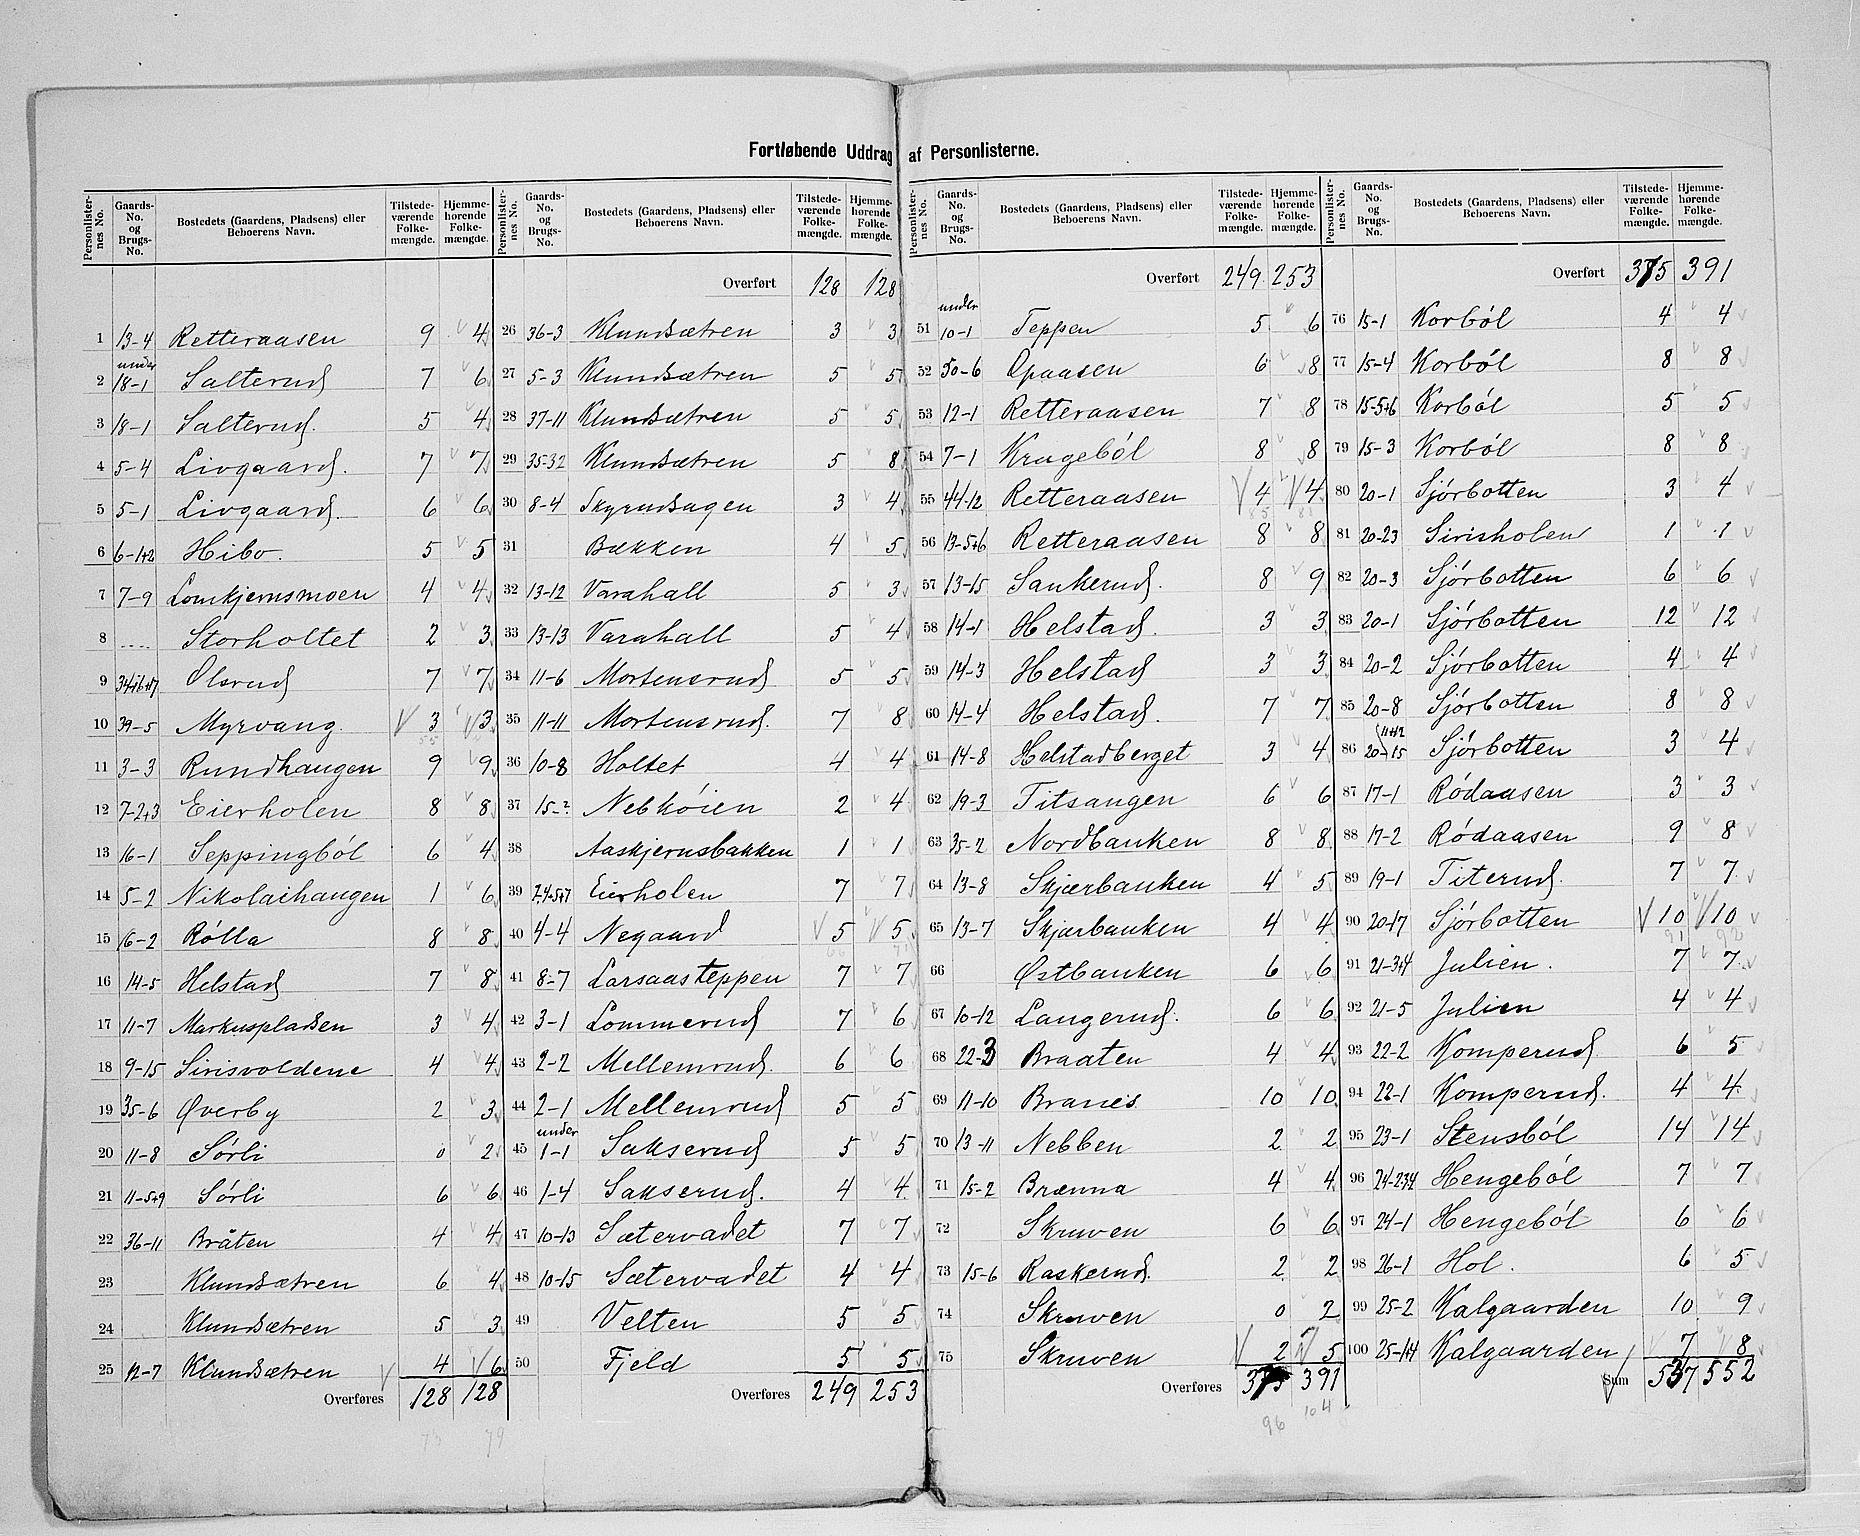 Fortløbende Uddrag af Personlisterne.
Personlisternes No. | Gaards-No. og Brugs-No. | Bostedets (Gaardens, Pladsens) eller Beboerens Navn. | Tilstedeværende Folkemængde. | Hjemmehørende Folkemængde.
1 13-4 Retteraasen 9 4
2 under 18-1 Salterud 7 6
3 18-1 Salterud. 5 4
4 5-4 Livgaard. 7 7
5 5-1 Livgaard. 6 6
6 6-1+2 Hibo. 5 5
7 7-9 Lomkjernsmoen 4 4
8 .... Storholtet 2 3
9 Olsrud 7 7
10 39-5 Myrvang. 3 3
11 3-3 Rundhaugen 9 9
12 7-2+3 Eierholen 8 8
13 16-1 Seppingból 6 4
14 5-2 Nikolaihaugen 1 6
15 16-2 Rólla 8 8
16 14-5 Helstad 7 8
17 11-7 Markuspladsen 3 4
18 9-15 Sirisvoldene 4 4
19 35-6 Øverby 2 3
20 11-8 Sórli 0 2
21 11-5+9 Sórli 6 6
22 36-11 Bråten 4 4
23 Klundsætren 6 4
24 Klundsætren 5 3
25 12-7 Klundsætren 4 6
Overføres 128 128
73 79
Personlisternes No. | Gaards-No. og Brugs-No. | Bostedets (Gaardens, Pladsens) eller Beboerens Navn. | Tilstedeværende Folkemængde. | Hjemmehørende Folkemængde.
Overført 128 128
26 36-3 Klundsætren 3 3
27 5-3 Klundsætren 5 5
28 37-11 Klundsætren 5 5
29 35-32 Klundsætren 5 8
30 8-4 Skyrudsagen 3 4
31 Bækken 4 5
32 13-12 Varahall 5 3
33 13-13 Varahall 5 4
34 11-6 Mortensrud 5 5
35 11-11 Mortensrud. 7 8
36 10-8 Holtet 4 4
37 15-? Nebhóien 2 4
38 Aaskjernsbakken 1 1
39 Eierholen 7 7
40 4-4 Negaard 5 5
41 8-7 Larsaasteppen 7 7
42 3-1 Lommerud 7 6
43 2-2 Mellemrud. 6 6
44 2-1 Mellemrud 5 5
45 under 1-1 Sakserud 5 5
46 1-4 Sakserud. 4 4
47 10-13 Sætervadet 7 7
48 10-15 Sætervadet 4 4
49 Velten 5 5
50 Fjeld 5 5
Overføres 249 253
Personlisternes No. | Gaards-No. og Brugs-No. | Bostedets (Gaardens, Pladsens) eller Beboerens Navn. | Tilstedeværende Folkemængde. | Hjemmehørende Folkemængde.
Overført 249. 253
51 under 10-1 Teppen 5 6
52 50-6 Opaasen 6 8
53 12-1 Retteraasen 7 8
54 7-1 Krugeból 8 8
55 44-12 Retteraasen 4 4
56 13-5+6 Retteraasen 8 8
57 13-15 Sankerud. 8 9
58 14-1 Helstad. 3 3
59 14-3 Helstad 3 3
60 14-4 Helstad. 7 7
61 14-8 Helstadberget 3 4
62 19-3 Titsangen 6 6
63 35-2 Nordbanken 8 8
64 13-8 Skjærbanken 4 5
65 13-7 Skjærbanken 4 4
66 Østbanken 6 6
67 10-12 Langerud. 6 6
68 22-3 Braaten 4 4
69 11-10 Branes 10 10
70 13-11 Nebben 2 2
71 15-2 Brænna 4 4
72 Skruven 6 6
73 15-6 Raskerud. 2 2
74 Skruven 0 2
75 Skruven 2 5
Overføres 375 391
96 104
Personlisternes No. | Gaards-No. og Brugs-No. | Bostedets (Gaardens, Pladsens) eller Beboerens Navn. | Tilstedeværende Folkemængde. | Hjemmehørende Folkemængde.
Overført 375 391
76 15-1 Korból 4 4
77 15-4 Korból 8 8
78 15-5+6 Korból 5 5
79 15-3 Korból 8 8
80 20-1 Sjórbotten 3 4
81 20-23 Sirisholen 1 1
82 20-3 Sjórbotten 6 6
83 20-1 Sjórbotten 12 12
84 20-2 Sjórbotten 4 4
85 20-8 Sjórbotten 8 8
86 20-11+12 15 Sjórbotten 3 4
87 17-1 Ródaasen 3 3
88 17-2 Ródaasen 9 8
89 19-1 Titerud. 7 7
90 20-17 Sjórbotten 10 10
91 92
91 21-3+4 Julien. 7 7
92 21-5 Julien 4 4
93 22-2 Komperud. 6 5
94 22-1 Komperud. 4 4
95 23-1 Stensból 14 14
96 24-2+3+4 Hengeból 7 7
97 24-1 Hengeból 6 6
98 26-1 Hol. 6 5
99 25-2 Kalgaarden 10 9
100 25-1+4 Kalgaarden 7 8
Sum 537 552